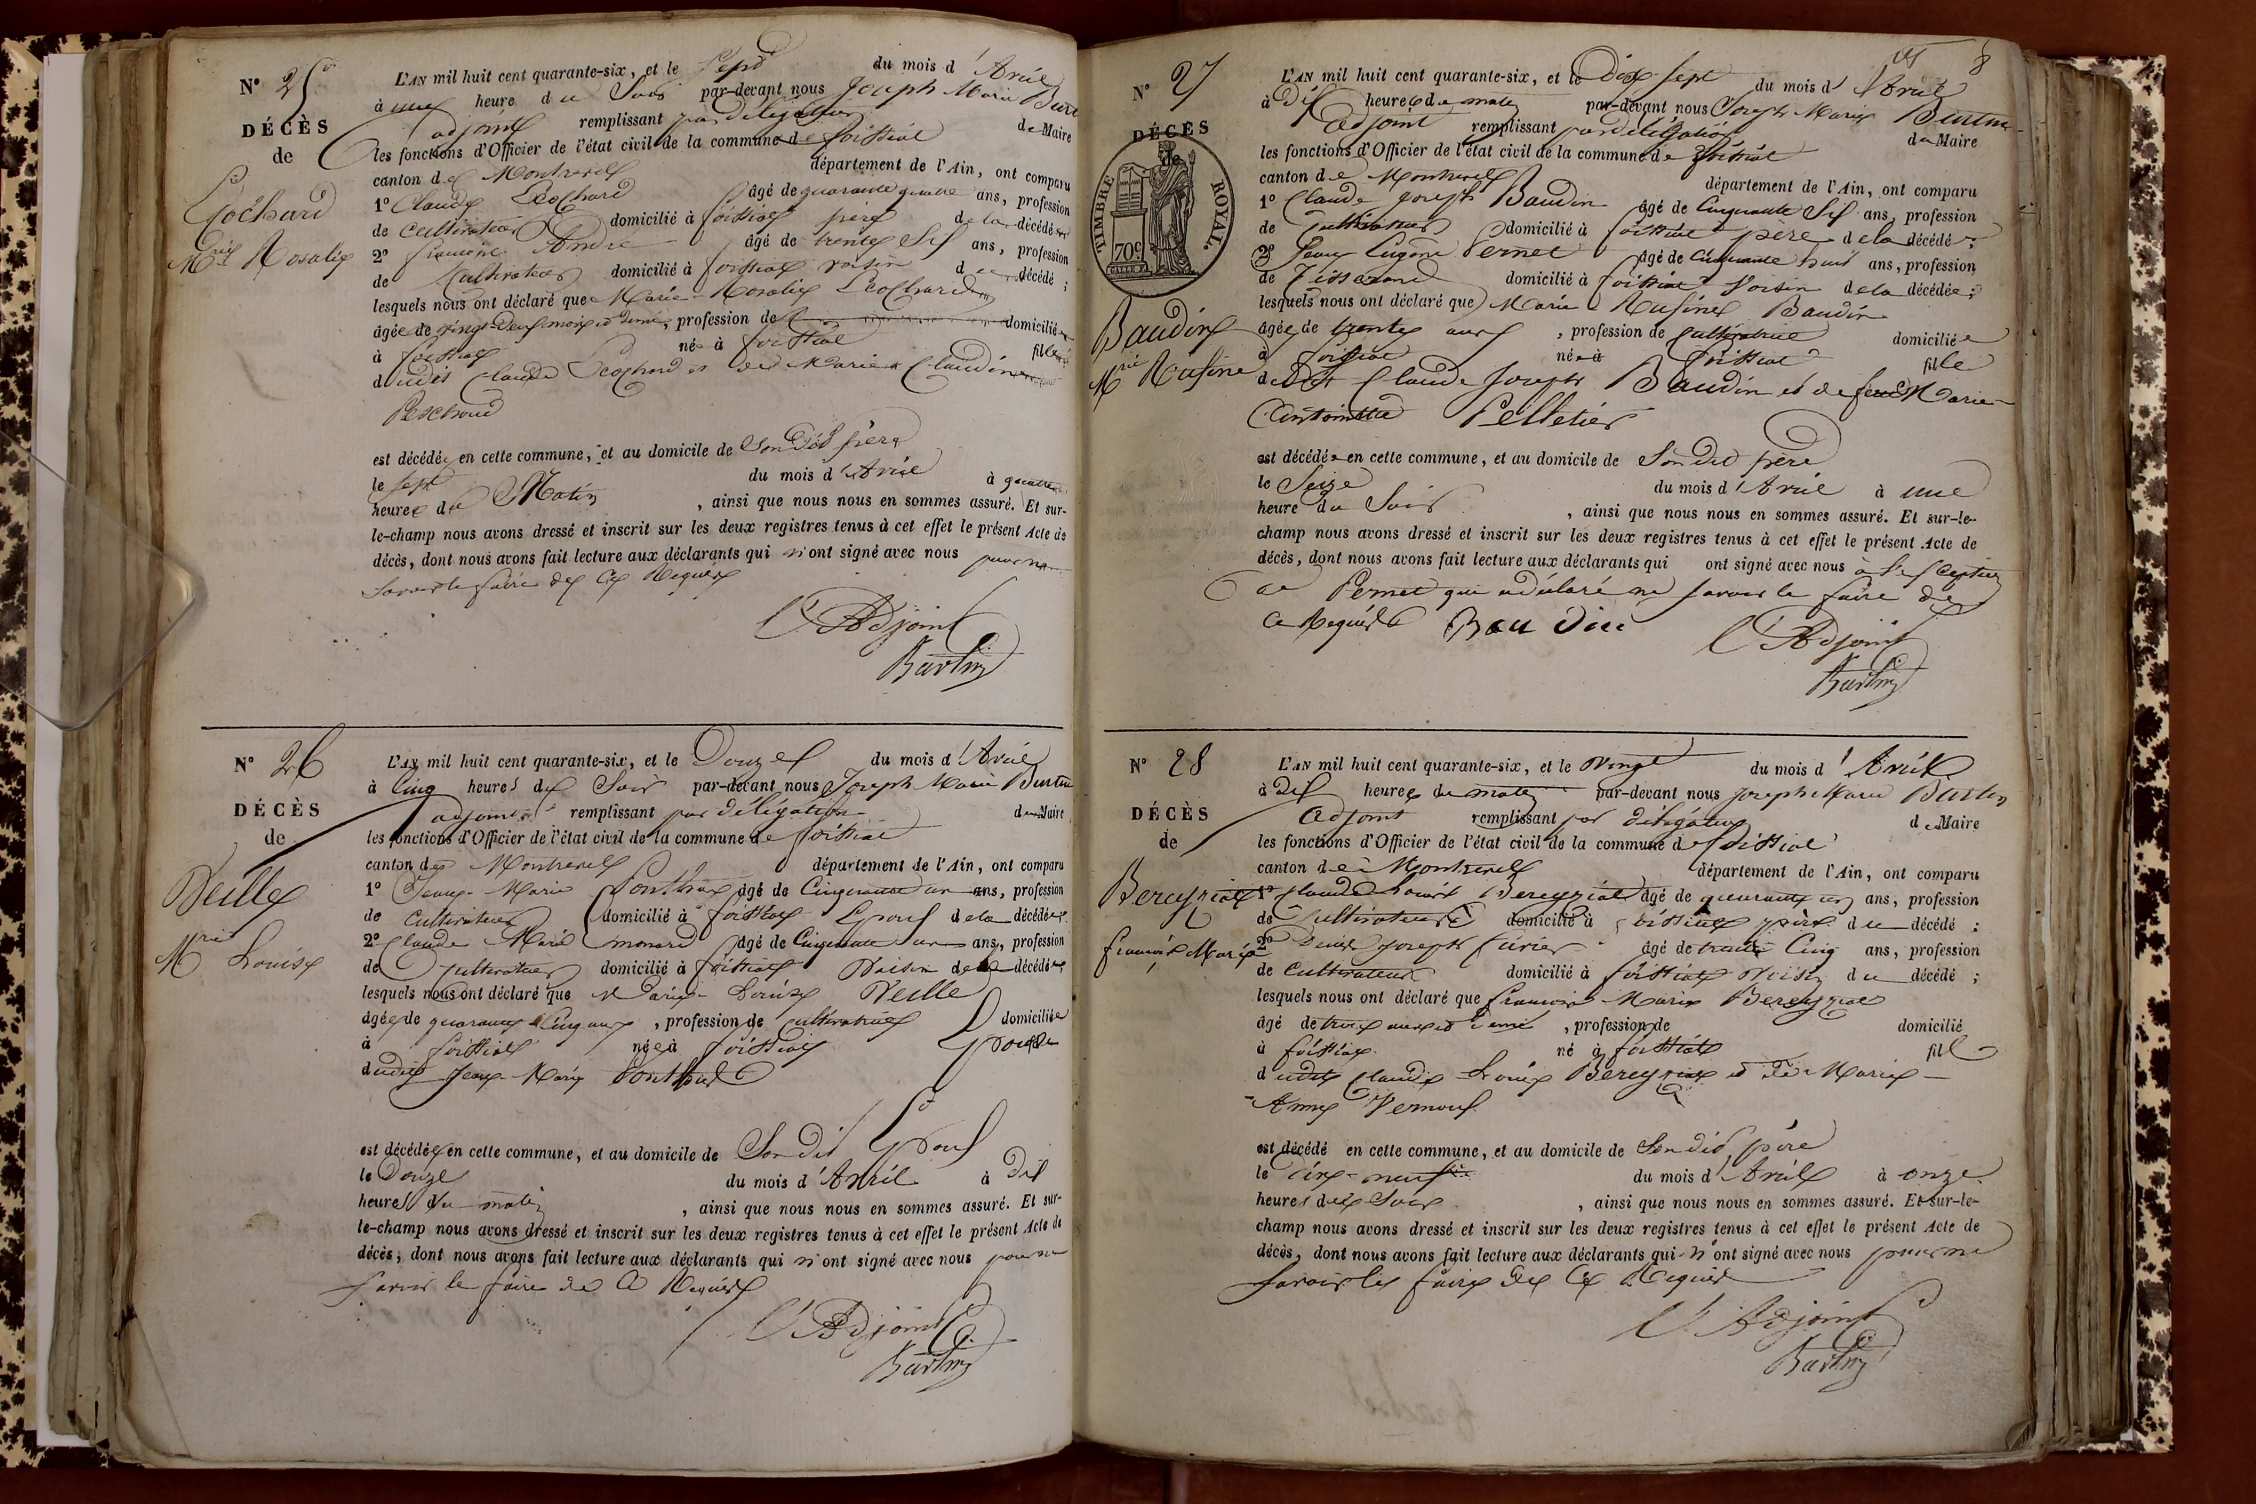 N° 25
DÉCÈS
de
Léchard
Mrie Rosalie
L'AN mil huit cent quarante-six, et le Sept du mois d'Avril
à une heure du Soir par-devant nous Joseph Marie Burtin
adjoint remplissant par délégation de Maire
les fonctions d'Officier de l'état civil de la commune de foissiat
canton de Montrevel département de l'Ain, ont comparu
1° Claude âgé de quarante quatre ans, profession
de cultivateur domicilié à foissiat père de la décédée
2° François André âgé de trente Six ans, profession
de Cultivateur domicilié à foissiat voisin d décédé ;
lesquels nous ont déclaré que Marie Rosalie
âgée de vingt Deux mois et demi, profession de domiciliée
à foissiat née à foissiat fille
dudit Claude et de Marie Claudine
est décédée en cette commune, et au domicile de Son dit père
le sept du mois d'Avril à quatre
heures du Matin, ainsi que nous nous en sommes assuré. Et sur-
le-champ nous avons dressé et inscrit sur les deux registres tenus à cet effet le présent Acte de
décès, dont nous avons fait lecture aux déclarants qui n'ont signé avec nous pour ne
savoir le faire de ce Requis
l'Adjoint
Burtin
N° 26
DÉCÈS
de
Veille
Mrie Louise
L'AN mil huit cent quarante-six, et le Douze du mois d'Avril
à Cinq heures du Soir par-devant nous Joseph Marie Burtin
adjoint remplissant par délégation de Maire
les fonctions d'Officier de l'état civil de la commune de foissiat
canton de Montrevel département de l'Ain, ont comparu
1° Jean Marie Ponthus âgé de Cinquante un ans, profession
de Cultivateur domicilié à foissiat Epoux de la décédée
2° Claude Marie monard âgé de Cinquante un ans, profession
de Cultivateur domicilié à foissiat Voisin de la décédée
lesquels nous ont déclaré que Marie Louise Veille
âgée de quarante Cinq ans, profession de cultivatrice domiciliée
à foissiat née à foissiat Epouse
dudit Jean Marie Ponthus
est décédée en cette commune, et au domicile de Son dit Epoux
le Douze du mois d'Avril à Dix
heures du matin, ainsi que nous nous en sommes assuré. Et sur-
le-champ nous avons dressé et inscrit sur les deux registres tenus à cet effet le présent Acte de
décès, dont nous avons fait lecture aux déclarants qui n'ont signé avec nous pour ne
savoir le faire de ce Requis
l'Adjoint
Burtin
8
N° 27
DÉCÈS
de
TIMBRE ROYAL.
70c
Baudin
Mrie Rosine
L'AN mil huit cent quarante-six, et le Dix Sept du mois d'Avril
à Dix heures du matin par-devant nous Joseph Marie Burtin
adjoint remplissant par délégation de Maire
les fonctions d'Officier de l'état civil de la commune de foissiat
canton de Montrevel département de l'Ain, ont comparu
1° Claude Joseph Baudin âgé de Cinquante Six ans, profession
de Cultivateur domicilié à foissiat père de la décédée ;
2° Jean Eugène Pernet âgé de Cinquante huit ans, profession
de Tisserand domicilié à foissiat Voisin de la décédée ;
lesquels nous ont déclaré que Marie Rosine Baudin
âgée de trente ans, profession de Cultivatrice domiciliée
à foissiat née à foissiat fille
dudit Claude Joseph Baudin et de feue Marie
Antoinette Pelletier
est décédée en cette commune, et au domicile de Son dit père
le Seize du mois d'Avril à une
heure du Soir, ainsi que nous nous en sommes assuré. Et sur-le-
champ nous avons dressé et inscrit sur les deux registres tenus à cet effet le présent Acte de
décès, dont nous avons fait lecture aux déclarants qui ont signé avec nous à l'exception
de Pernet qui a déclaré ne savoir le faire de
ce Requis Baudin
l'Adjoint
Burtin
N° 28
DÉCÈS
de
Bereyziat
françois Marie
L'AN mil huit cent quarante-six, et le Vingt du mois d'Avril
à Dix heures du matin par-devant nous Joseph Marie Burtin
adjoint remplissant par délégation de Maire
les fonctions d'Officier de l'état civil de la commune de foissiat
canton de Montrevel département de l'Ain, ont comparu
1° Claude Louis Bereyziat âgé de quarante un ans, profession
de Cultivateur domicilié à foissiat père du décédé ;
2° Denis Joseph âgé de trente Cinq ans, profession
de Cultivateur domicilié à foissiat Voisin du décédé ;
lesquels nous ont déclaré que françois Marie Bereyziat
âgé de trois ans et demi, profession de domicilié
à foissiat né à foissiat fils
dudit Claude Louis Bereyziat et de Marie
Anne Vernoux
est décédé en cette commune, et au domicile de Son dit père
le Dix-neuf du mois d'Avril à onze
heures du Soir, ainsi que nous nous en sommes assuré. Et sur-le-
champ nous avons dressé et inscrit sur les deux registres tenus à cet effet le présent Acte de
décès, dont nous avons fait lecture aux déclarants qui n'ont signé avec nous pour ne
savoir le faire de ce Requis
l'Adjoint
Burtin